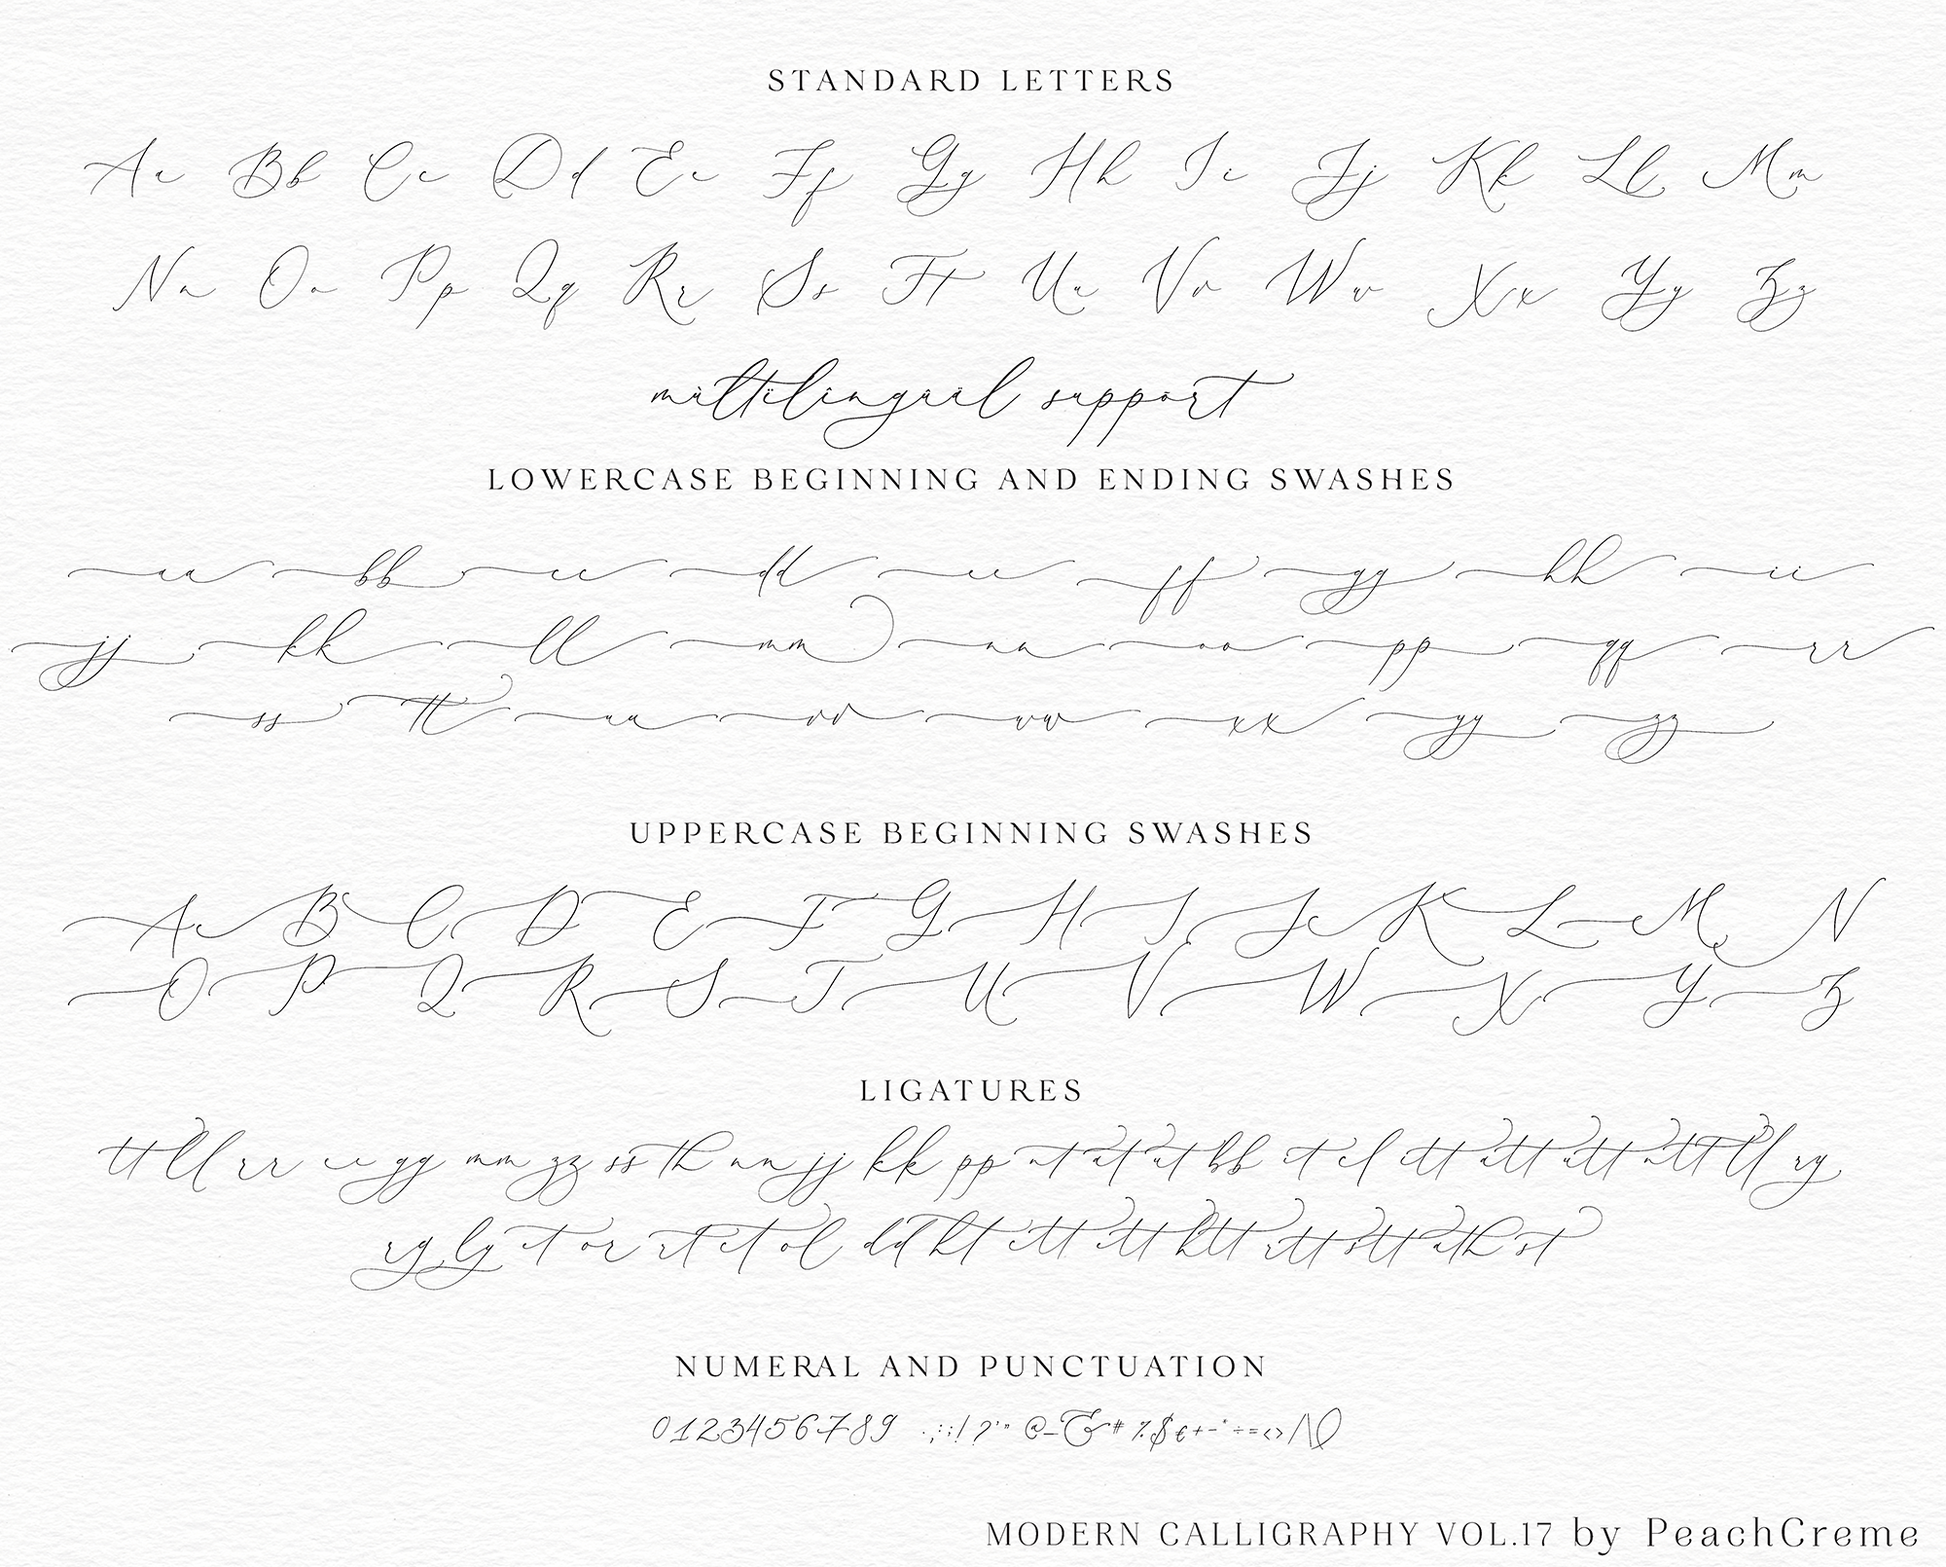 STANDARD LETTERS
Aa Bb Cc Dd Ee Ff Gg Hh Ii Jj Kk Ll Mm
Nn Oo Pp Qq Rr Ss Tt Uu Vv Ww Xx Yy Zz
mùltïlîngúäl süppört
LOWERCASE BEGINNING AND ENDING SWASHES
aa bb cc dd ee ff gg hh ii
jj kk ll mm nn oo pp qq rr
ss tt uu vv ww xx yy zz
UPPERCASE BEGINNING SWASHES
A B C D E F G H I J K L M N
O P Q R S T U V W X Y Z
LIGATURES
tt ll rr ee gg mm zz ss th nn jj kk pp
NUMERAL AND PUNCTUATION
0123456789 .,;:!?'" @_&#%$€+-*÷=<>/\
MODERN CALLIGRAPHY VOL.17 by PeachCreme